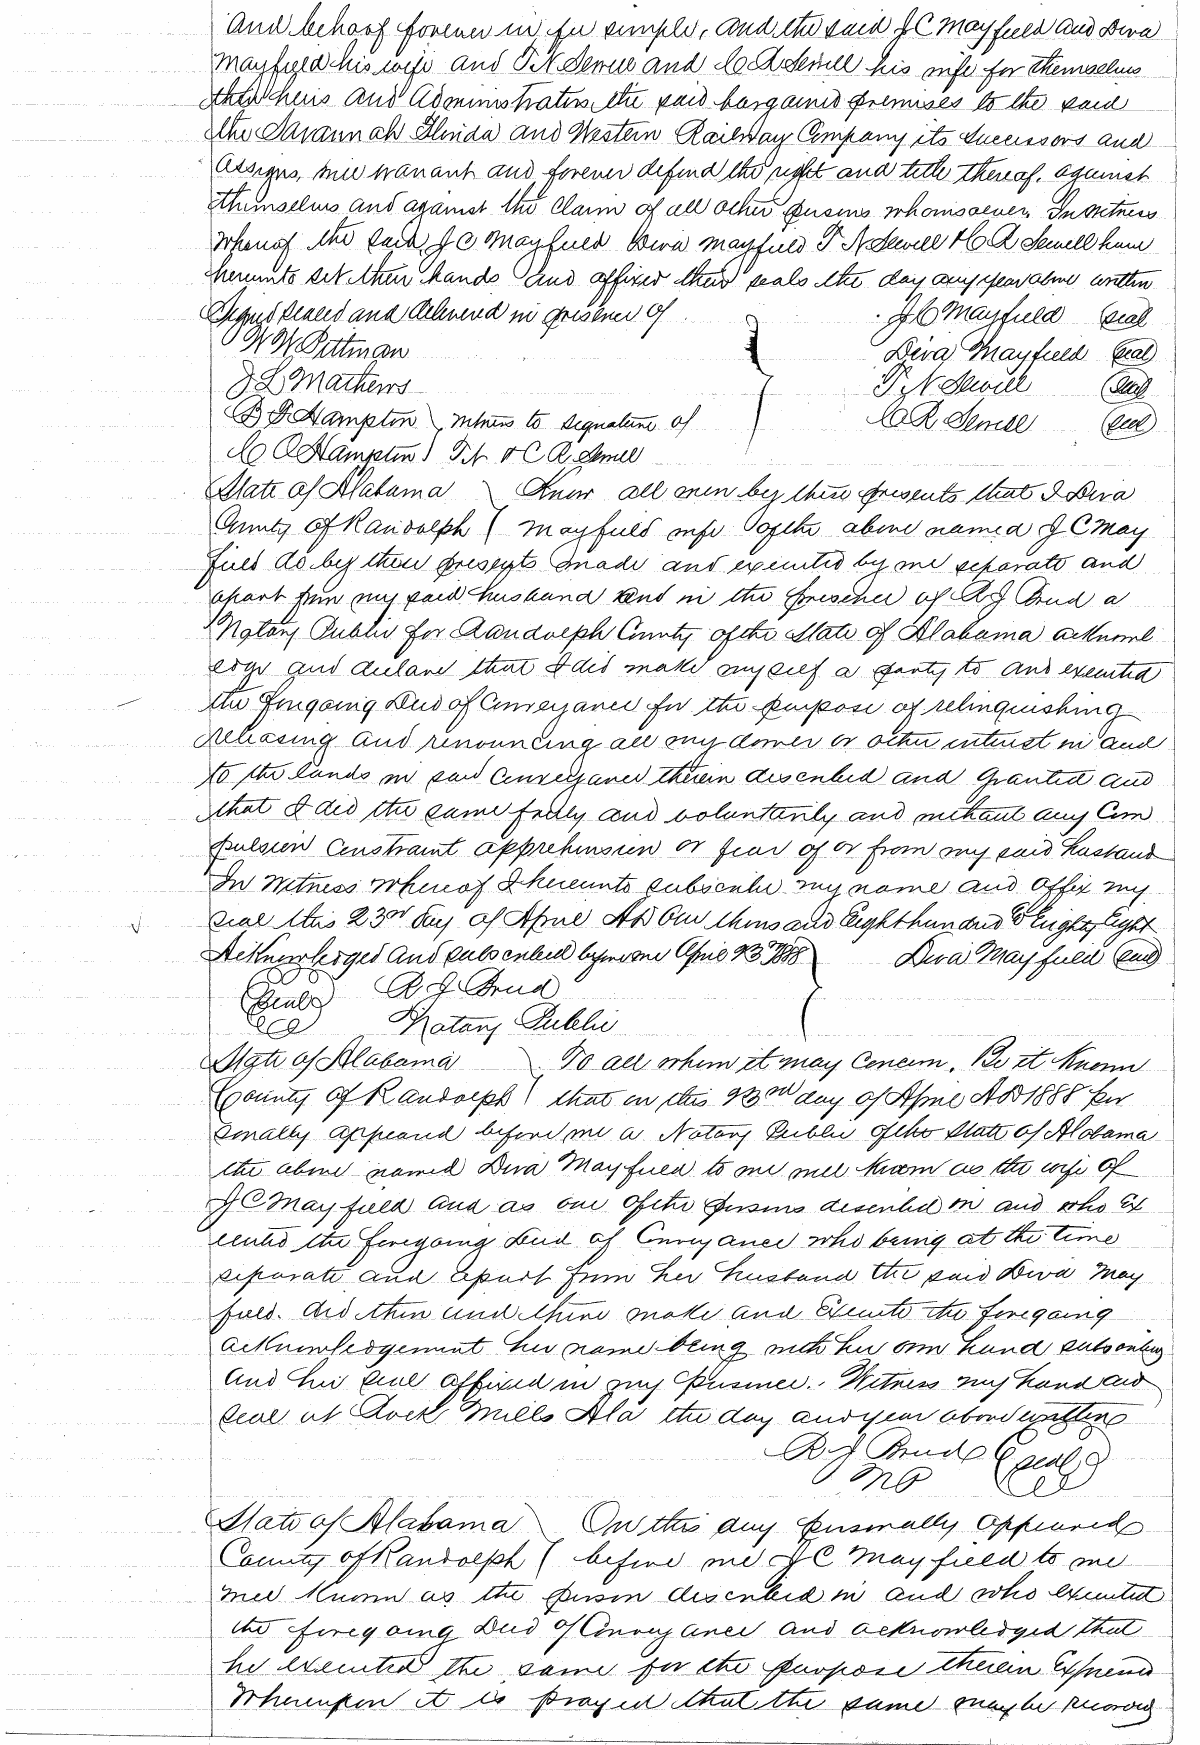 and behoof forever in fee simple, and the said J C Mayfield and Diva
Mayfield his wife and T N Sewell and C R Sewell his wife for themselves
their heirs and Administrators the said bargained premises to the said
the Savannah Florida and Western Railway Company its successors and
assigns, will warrant and forever defend the right and title thereof, against
themselves and against the claim of all other persons whomsoever. In witness
whereof the said J C Mayfield Diva Mayfield T N Sewell & C R Sewell have
hereunto set their hands and affixed their seals the day any year above written
Signed sealed and delivered in presence of J C Mayfield (seal)
W W Pittman Diva Mayfield (seal)
J L Mathews T N Sewell (seal)
B F Hampton witness to signature of C R Sewell (seal)
C O Hampton T N & C R Sewell
State of Alabama Know all men by these presents that I Diva
County of Randolph Mayfield wife of the above named J C May
field do by these presents made and executed by me separate and
apart from my said husband and in the presence of R J
Notary Public for Randolph County of the State of Alabama acknowl
edge and declare that I did make myself a party to and executed
the foregoing Deed of Conveyance for the purpose of relinquishing
releasing and renouncing all my dower or other interest in and
to the lands in said conveyance therein described and granted and
that I did the same freely and voluntarily and without any Com
pulsion constraint apprehension or fear of or from my said husband
In Witness whereof I hereunto subscribe my name and affix my
seal this 23rd day of April AD One thousand Eight hundred & Eighty Eight
Acknowledged and subscribed before me April 23 1888 Diva Mayfield (seal)
(Seal) R J
Notary Public
State of Alabama To all whom it may concern. Be it Known
County of Randolph that on this 23rd day of April AD 1888 per
sonally appeared before me a Notary Public of the State of Alabama
the above named Diva Mayfield to me well known as the wife of
J C Mayfield and as one of the persons described in and who Ex
ecuted the foregoing Deed of Conveyance who being at the time
separate and apart from her husband the said Diva May
field. did then and there make and Execute the foregoing
acknowledgement her name being with her own hand subscribed
and her seal affixed in my presence. Witness my hand and
seal at Rock Mills Ala the day and year above written
R J (seal)
N P
State of Alabama On this day personally appeared
County of Randolph before me J C Mayfield to me
well known as the person described in and who executed
the foregoing Deed of Conveyance and acknowledged that
he executed the same for the purpose therein Expressed
Whereupon it is prayed that the same may be recorded